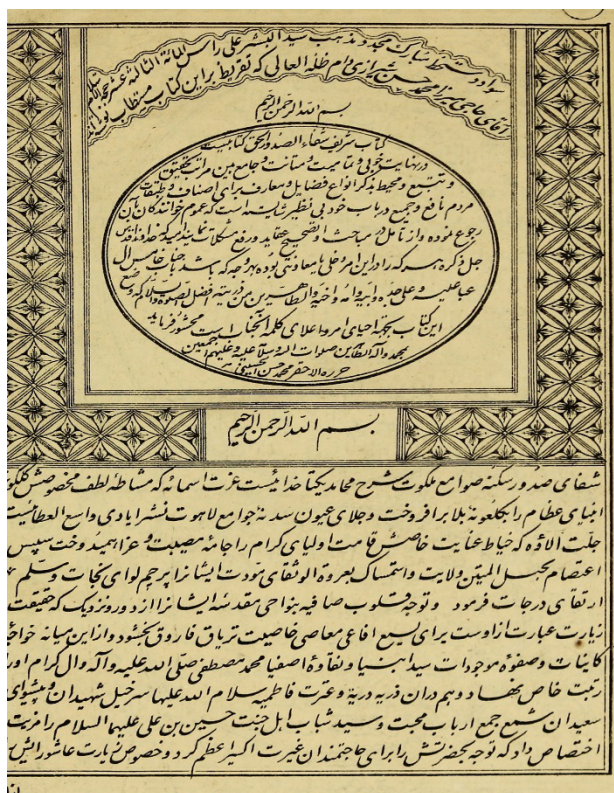 سواد دستخط مبارک مجدد مذهب سید البشر علی راس المائة الثالثة عشر حجة الاسلام
آقای حاجی میرزا محمد حسن شیرازی ادام ظله العالی که تقریظ بر این کتاب مستطاب
بسم الله الرحمن الرحیم
کتاب شریف شفاء الصدور الحق کتابیست
در نهایت خوبی و تمامیت و متانت و جامع بین مراتب تحقیق
و تتبع و محیط بذکر انواع فضایل و معارف برای اصناف و طبقات
مردم نافع و جمیع در باب خود بی نظیر شایسته است که عموم خوانندگان بآن
رجوع نموده و از تامل در مباحث او تصحیح عقاید و رفع مشکلات نمایند امید که خداوند
جل ذکره هر که را در این امر دخلی یا معاونتی بوده بهر وجه که باشد با جناب خامس آل
عبا علیه و علی جده و ابیه و امه و اخیه و الطاهرین من ذریته افضل الصلوة و السلام که وضع
این کتاب بجهة احیای امر و اعلای کلمه آنجناب است محشور فرماید
بمحمد و آله الطاهرین صلوات الله و سلامه علیه و علیهم اجمعین
حرره الاحقر محمد حسن الحسینی
بسم الله الرحمن الرحیم
شفای صدور سکنه صوامع ملکوت شرح محامد یکتا خدائیست عزت اسمائه که مشاطه لطف مخصوصش
انبیای عظام را بگلگونه بلا برافروخت و جلای عیون سدنه جوامع لاهوت نشر ایادی واسع العطائیست
جلت آلاؤه که خیاط عنایت خاصش قامت اولیای کرام را جامه مصیبت و عزا همیدوخت سپس
اعتصام بحبل المتین ولایت و استمساک بعروة الوثقای مودت ایشانرا پرچم لوای نجات و سلم
ارتقای درجات فرمود و توجیه قلوب صافیه بنواحی مقدسه ایشانرا از دور و نزدیک که حقیقت
زیارت عبارت از اوست برای لسیع افاعی معاصی خاصیت تریاق فاروق بخشود و از این میانه خواجه
کاینات و صفوه موجودات سید انبیا و نقاوة اصفیا محمد مصطفی صلی الله علیه و آله و آل کرام اورا
رتبت خاص نهاد و هم در ان ذریه دریة و عترت فاطمیه سلام الله علیها سر خیل شهیدان و پیشوای
سعیدان شمع جمع ارباب محبت و سید شباب اهل جنت حسین بن علی علیهما السلام را مزیت
اختصاص داد که توجه بحضرتش را برای حاجتمندان غیرت اکسیر اعظم کرد و خصوص زیارت عاشورایش